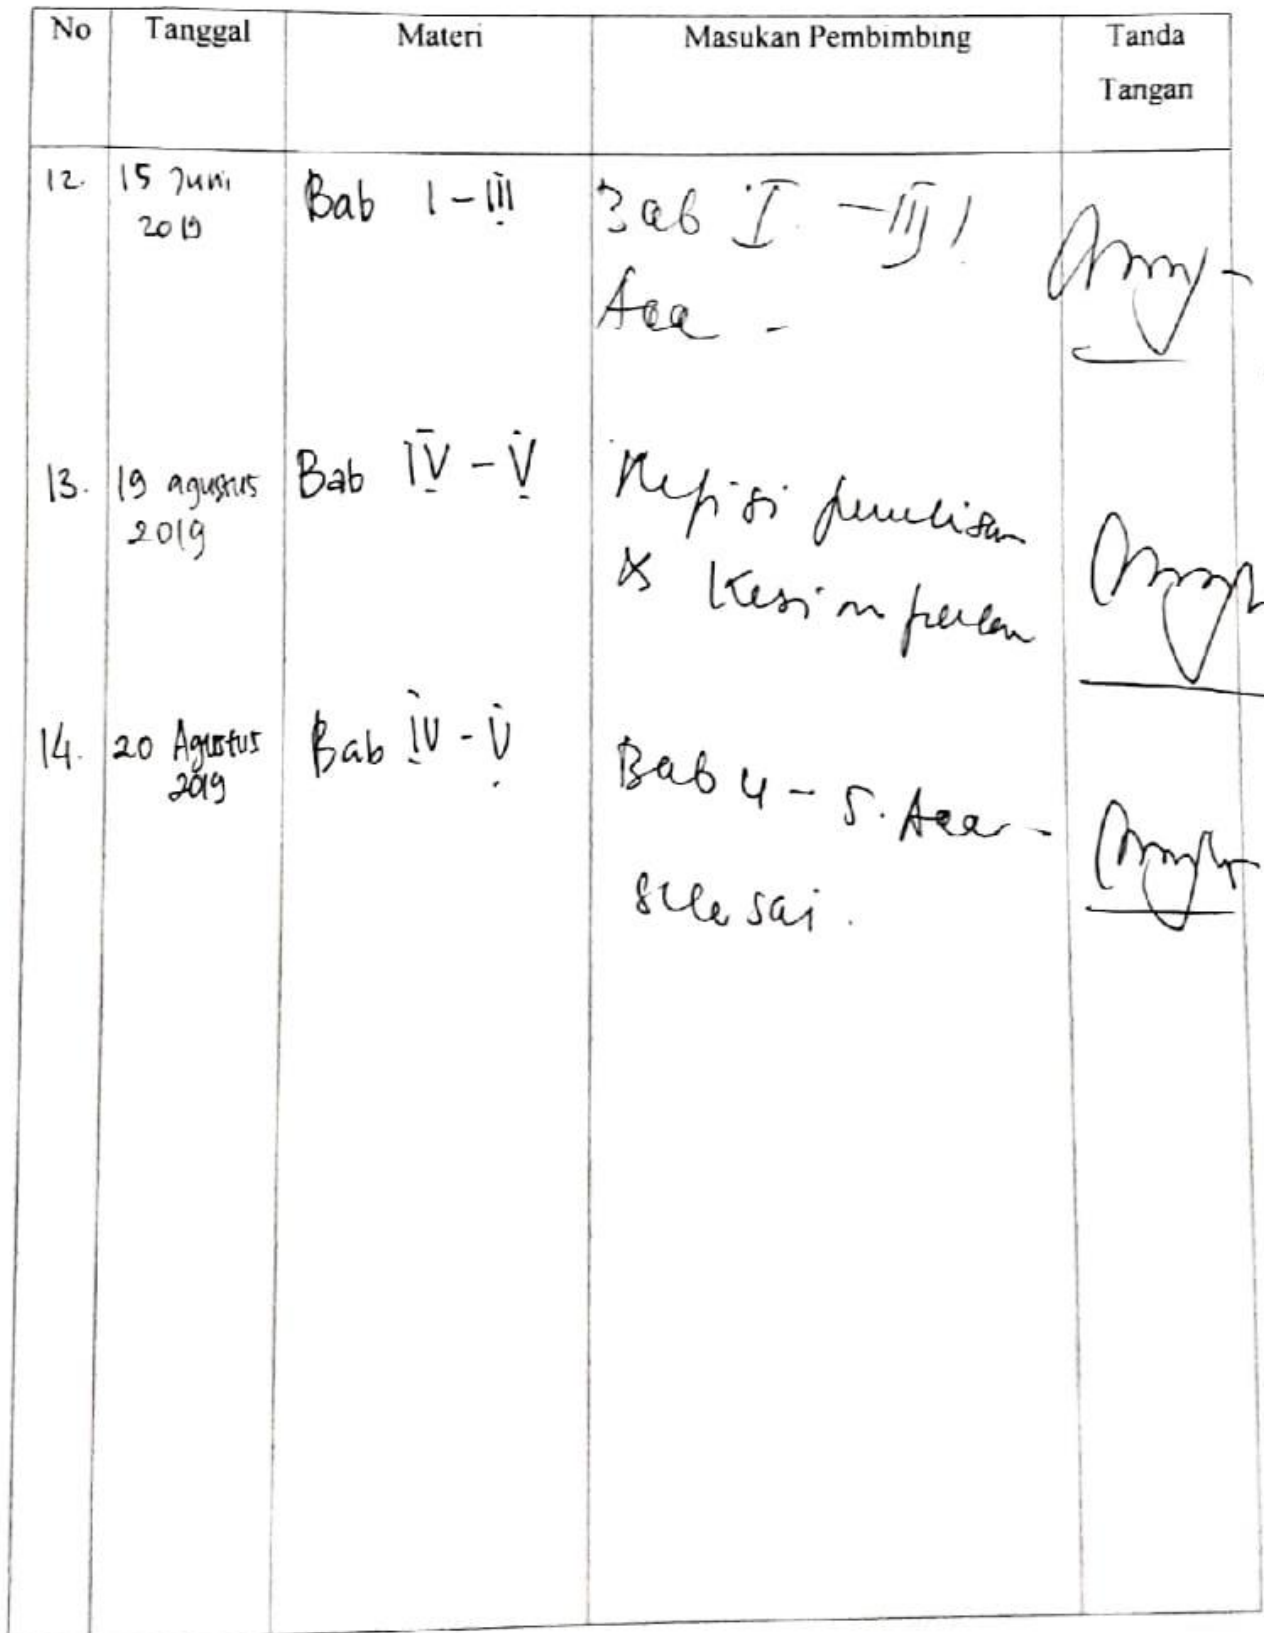 No Tanggal Materi Masukan Pembimbing Tanda
Tangan
12. 15 Juni Bab I - III Bab I - III !
2019
Acc -
13. 19 agustus Bab IV - V Revisi penulisan
2019
& Kesimpulan
14. 20 Agustus Bab IV - V Bab 4 - 5. Acc -
2019
selesai.